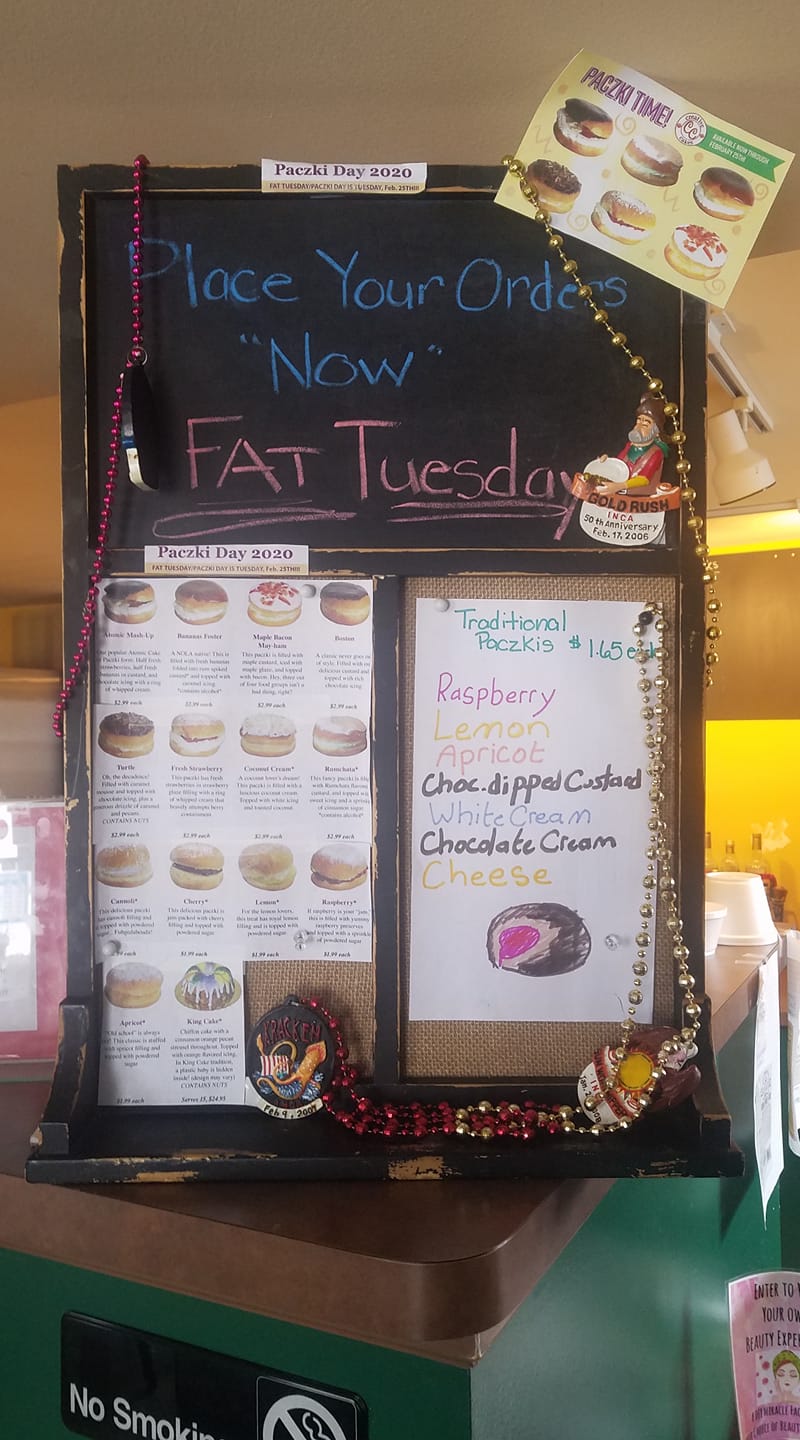 PACZKI TIME!
Creative Cakes
CC
AVAILABLE NOW THROUGH
FEBRUARY 25TH!
Paczki Day 2020
FAT TUESDAY/PACZKI DAY IS TUESDAY, Feb. 25TH!!!
Place Your Orders
"Now"
FAT Tuesday
GOLD RUSH
INCA
50th Anniversary
Feb. 17, 2006
Paczki Day 2020
FAT TUESDAY/PACZKI DAY IS TUESDAY, Feb. 25TH!!!
Atomic Mash-Up
popular Atomic Cake
Paczki form. Half fresh
strawberries, half fresh
bananas or custard, and
chocolate icing with a ring
of whipped cream.
$2.99 each
Bananas Foster
A NOLA native! This is
filled with fresh bananas
folded into rum spiked
custard* and topped with
caramel icing.
*contains alcohol*
$2.99 each
Maple Bacon
May-ham
This paczki is filled with
maple custard, iced with
maple glaze, and topped
with bacon. Hey, three out
of four food groups isn't a
bad thing, right?
$2.99 each
Boston
A classic never goes
of style. Filled with
delicious custard and
topped with rich
chocolate icing.
$2.99 each
Turtle
Oh, the decadence!
Filled with caramel
mousse and topped with
chocolate icing, plus a
generous drizzle of caramel
and pecans.
CONTAINS NUTS
$2.99 each
Fresh Strawberry
This paczki has fresh
strawberries in strawberry
glaze filling with a ring
of whipped cream that
heavily attempts
containment.
$2.99 each
Coconut Cream*
A coconut lover's dream!
This paczki is filled with a
luscious coconut cream.
Topped with white icing
and toasted coconut.
$2.99 each
Rumchata*
This fancy paczki is
with Rumchata flavored
custard, and topped with
sweet icing and a sprinkle
of cinnamon sugar.
*contains alcohol*
$2.99 each
Cannoli*
This delicious paczki
has cannoli filling and
topped with powdered
$1.99 each
Cherry*
This delicious paczki is
jam packed with cherry
filling and topped with
powdered sugar
$1.99 each
Lemon*
For the lemon lovers,
this treat has royal lemon
filling and is topped with
powdered sugar
$1.99 each
Raspberry*
If raspberry is your "jam,"
this is filled with yummy
raspberry preserves
and topped with a sprinkle
of powdered sugar
$1.99 each
Apricot*
"Old school" is always
This classic is stuffed
with apricot filling and
topped with powdered
sugar
$1.99 each
King Cake*
Chiffon cake with a
cinnamon orange pecan
streusel throughout. Topped
with orange flavored icing.
In King Cake tradition,
a plastic baby is hidden
inside! (design may vary)
CONTAINS NUTS
Serves 15, $24.95
Traditional
Paczkis $1.65 each
Raspberry
Lemon
Apricot
Choc.dipped Custard
White Cream
Chocolate Cream
Cheese
KRACKEN
Feb 9, 2007
No Smoking
ENTER TO
YOUR OW
BEAUTY EXPE
MIRACLE FA